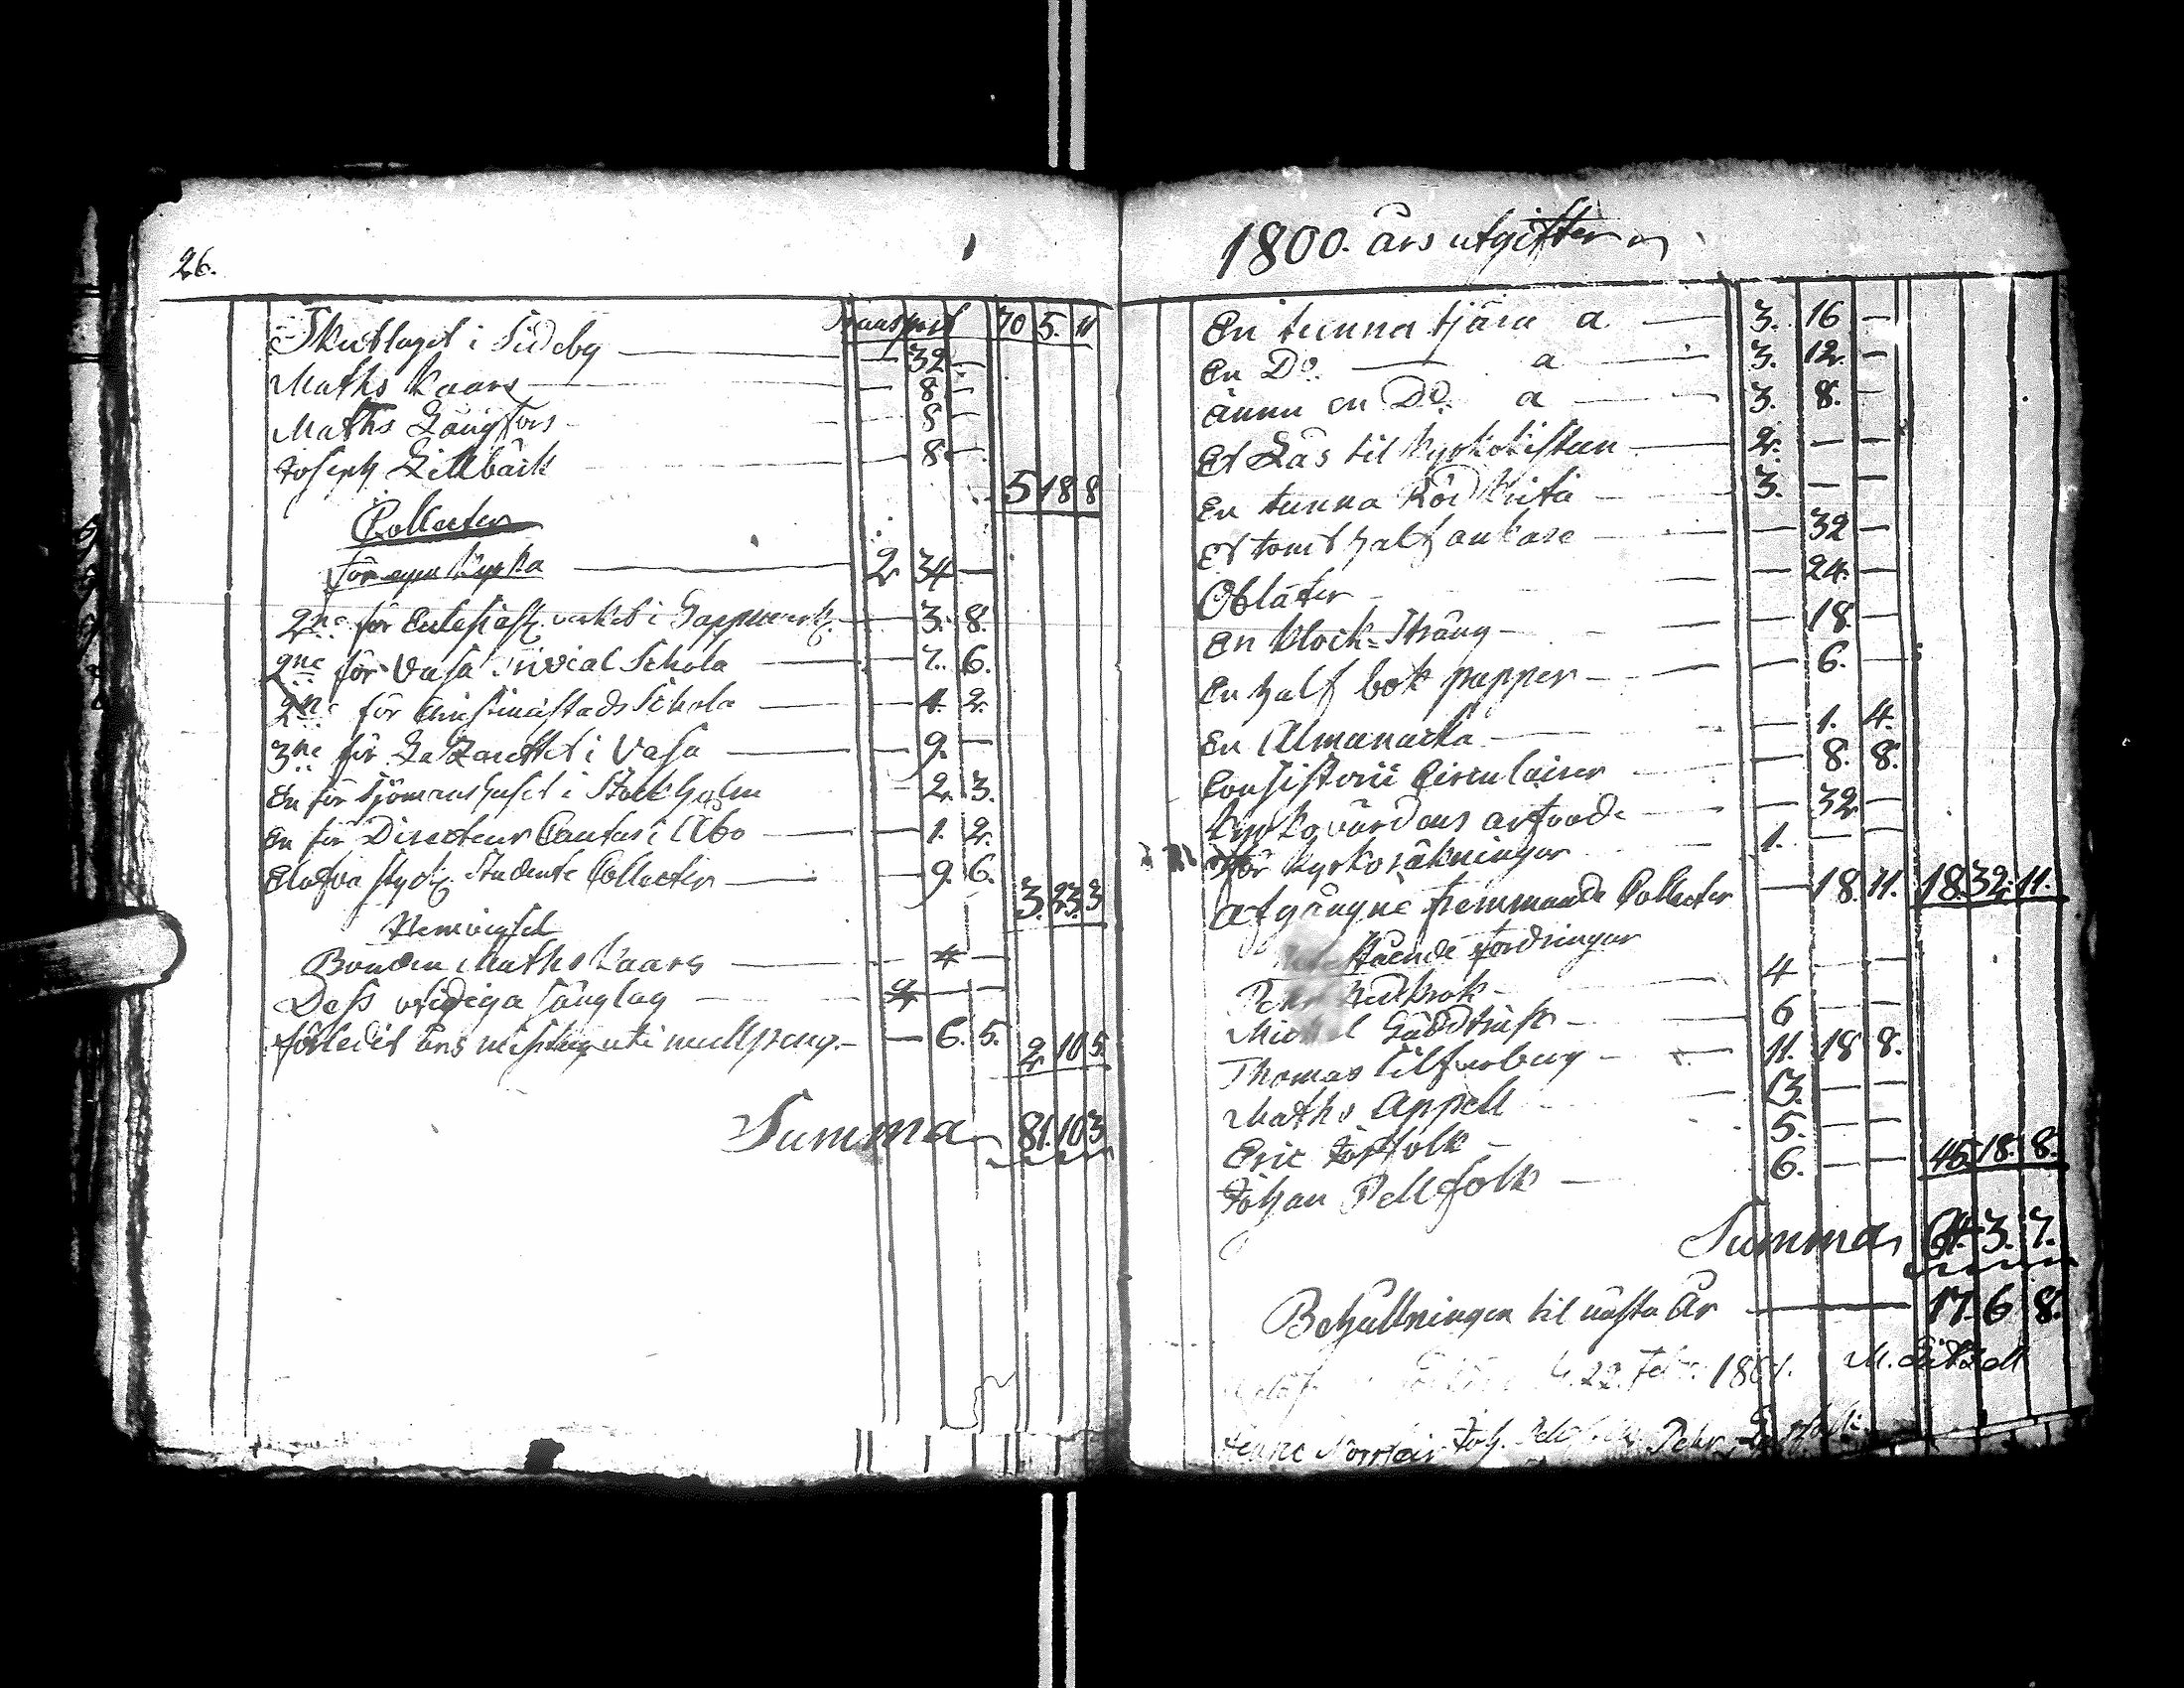 26.
Transport 70 5. 11
Skutlaget i Sideby — 32 —
Maths Kaars — 8 —
Maths Långfors — 8 —
Joseph Lillbäck — 8 —
5 18 8
Collecter
för egen Kyrka 2 34 —
2ne för Eclesiast. verket i Lappmark. — 3. 8.
2ne för Vasa Trivial Schola — 7. 6.
2ne för Christinæstads Schola — 4. 2.
3ne för Lazarettet i Vasa — 9. —
En för Sjömanshuset i Stockholm — 2. 3.
En för Directeur Cantas i Åbo — 1. 2.
Elofva styck. Studente Collecter — 9. 6.
3. 23. 3
Bonden Maths Kaars — 4 —
Dess vidiga sånglag 2 — —
förledit års — 6. 5.
2 10 5.
Summa 81. 10 3
1800. års utgifter
En tunna tjära a 3. 16 —
En Do. a 3. 12. —
ännu en Do. a 3. 8. —
Et Lås til Kyrkokistan 2. — —
En tunna Röd Krita 3. — —
Et tomt halfankare — 32 —
Oblater — 24. —
En klock-Sträng — 18. —
En half bok papper — 6. —
En Almanacka — 1. 4.
Consistorii Circulairer — 8. 8.
Kyrkovärdens arfvode — 32 —
för Kyrkoräkningar 1. — —
Afgångne fremmande Collecter — 18. 11. 18. 32. 11.
stående fordringar
4 — —
Michel 6 — —
Thomas Silfverberg 11. 18 8.
Maths Appell 13. — —
Eric Josfolk 5. — —
Johan Pellfolk 6. — — 45. 18. 8.
Summa 64. 3. 7.
Behållningen til nästa År 17. 6 8.
22. Febr. 1801. M.
Norrgår Joh. Pehr